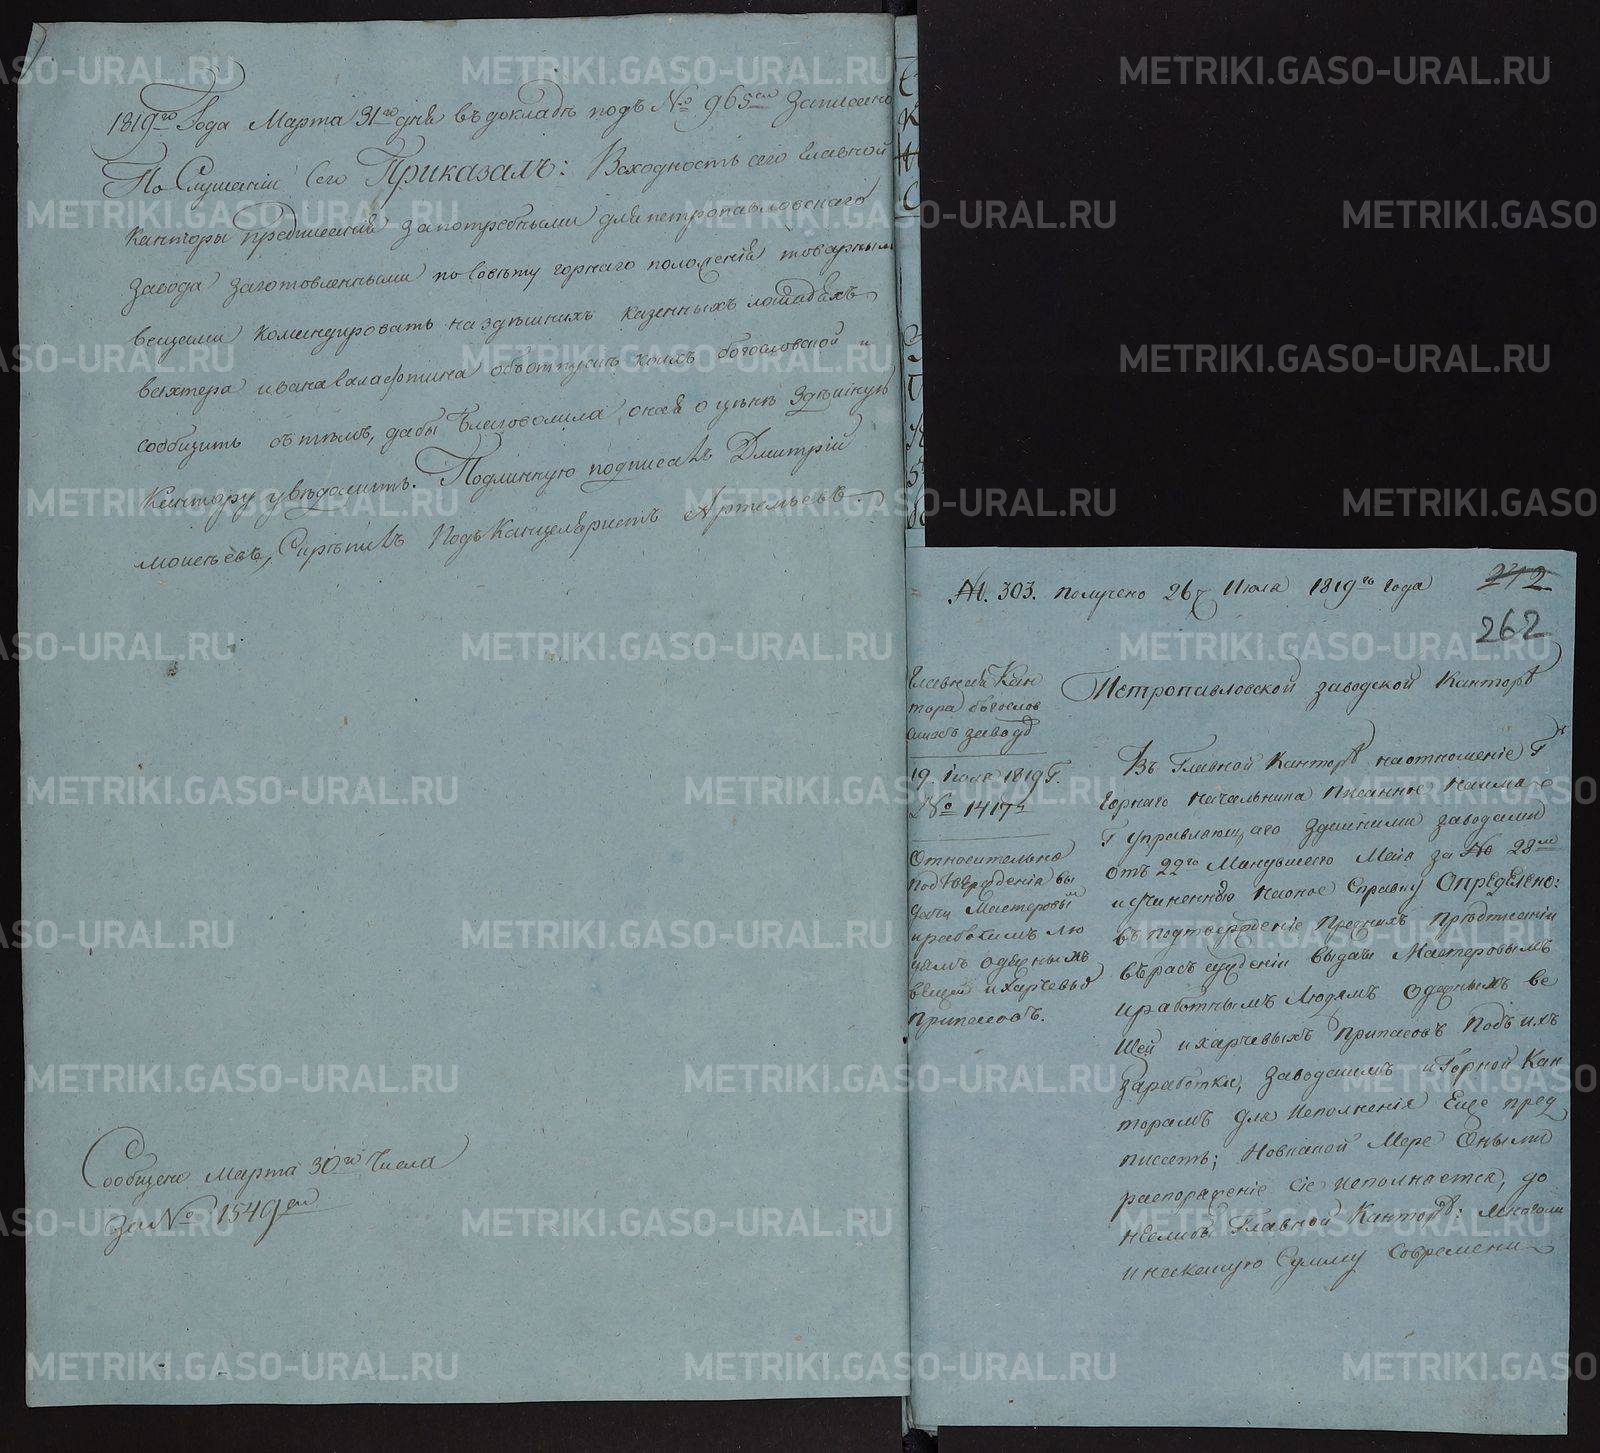 1819го Года Марта 31го дня въ докладѣ подъ № 965ем записано
По Слушаніи сего Приказалъ: Всходность сего Главной
Канторы предписанія за потребными для петропавловскаго
завода заготовленными по совѣту горнаго положенія товарными
вещами командировать на здѣшнихъ казенныхъ лошадяхъ
вахтера ивана объ отпускѣ коихъ богословской
сообщить съ тѣмъ, дабы благоволила оная о цѣнѣ здѣшнюю
Кантору увѣдомить. Подлинную подписалъ Дмитрій
Моисѣевъ, Скрѣпилъ Подъ Канцеляристъ Артемьевъ
Сообщено марта 30го Числа
за № 1549ем
№. 303. получено 26г Июля 1819го года
272
262
Главная Кан
тора богослов
скихъ заводъ
19. Іюля 1819 Г.
№ 1417
Относительно
подтвержденія вы
дачи Мастеровы
и работимъ лю
дямъ одежныхъ
вещей и харчевыхъ
припасовъ.
Петропавловской заводской Канторѣ
Въ Главной Канторѣ на отношеніе Г
Горнаго Начальника Писанное на имя
Г управляющаго здѣшними заводами
отъ 22го Минувшего Мая за № 28м
и учиненную на оное Справку Опредѣлено:
въ подтвержденіе Преднихъ Предписаніи
въ разсужденіи выдачи Мастеровымъ
и работнымъ Людямъ Одежныхъ ве
щей и харчевыхъ припасовъ подъ ихъ
заработки, заводскимъ и Горной Кан
торамъ для исполненія Еще пред
писать; Но въ какой Мере Оными
распоряженіе сіе исполняется, до
несли бы Главной Канторѣ: много ли
и на какую Сумму Современи
METRIKI.GASO-URAL.RU